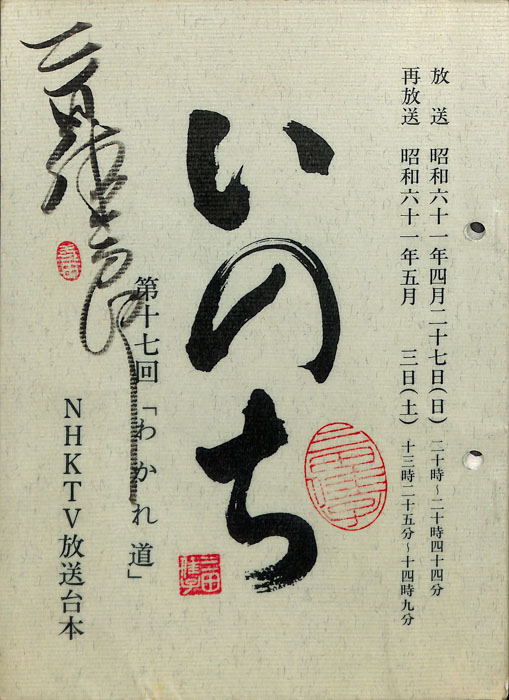 放　送　昭和六十一年四月二十七日(日)　二十時～二十時四十四分
再放送　昭和六十一年五月　三日(土)　十三時二十五分～十四時九分
いのち
第十七回「わかれ道」
NHKTV放送台本